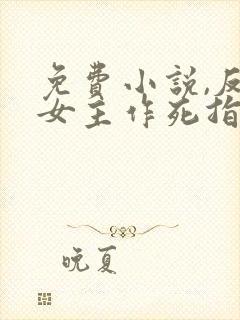 免費小説,反
女主作死指
晚夏